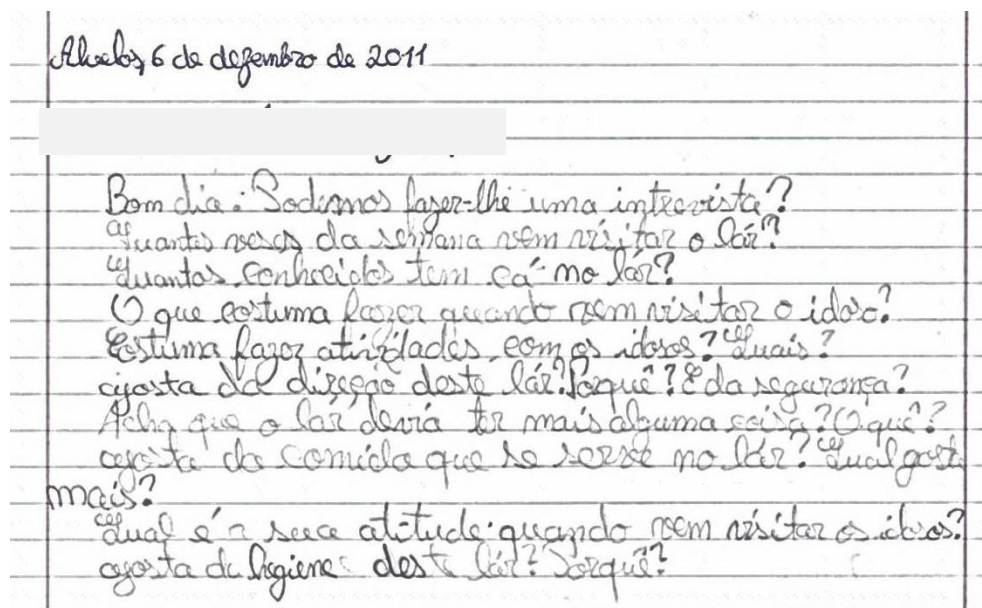 Alvelos, 6 de dezembro de 2011
Bom dia. Podemos fazer-lhe uma intrevista?
Quantas veses da semana vem visitar o lár?
Quantos conhecidos tem cá no lár?
O que costuma fazer quando vem visitar o idoso?
Costuma fazer atividades com os idosos? Quais?
Gosta da direção deste lár? Porquê? E da segurança?
Acha que o lar devia ter mais alguma coisa? O quê?
Gosta da comida que se serve no lár? Qual gosta
mais?
Qual é a sua atitude quando vem visitar os idosos?
Gosta da higiene deste lár? Porquê?